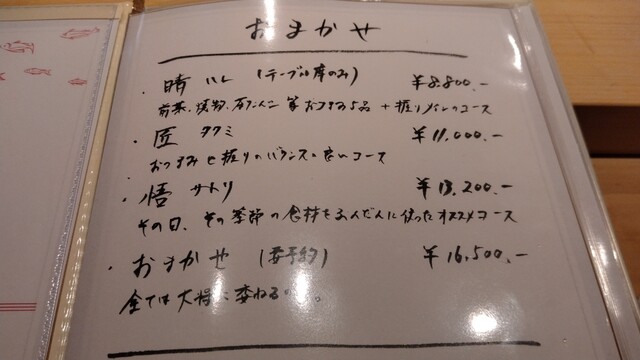 おまかせ
・晴 ハレ (テーブル席のみ) ¥8.800.-
前菜、焼物、 等おつまみ5品 + 握りメインのコース
・匠 タクミ ¥11.000.-
おつまみと握りのバランス良いコース
・悟 サトリ ¥13.200.-
その日、その季節の食材をふんだんに使ったオススメコース
・おまかせ (要予約) ¥16.500.-
全ては大将に委ねる